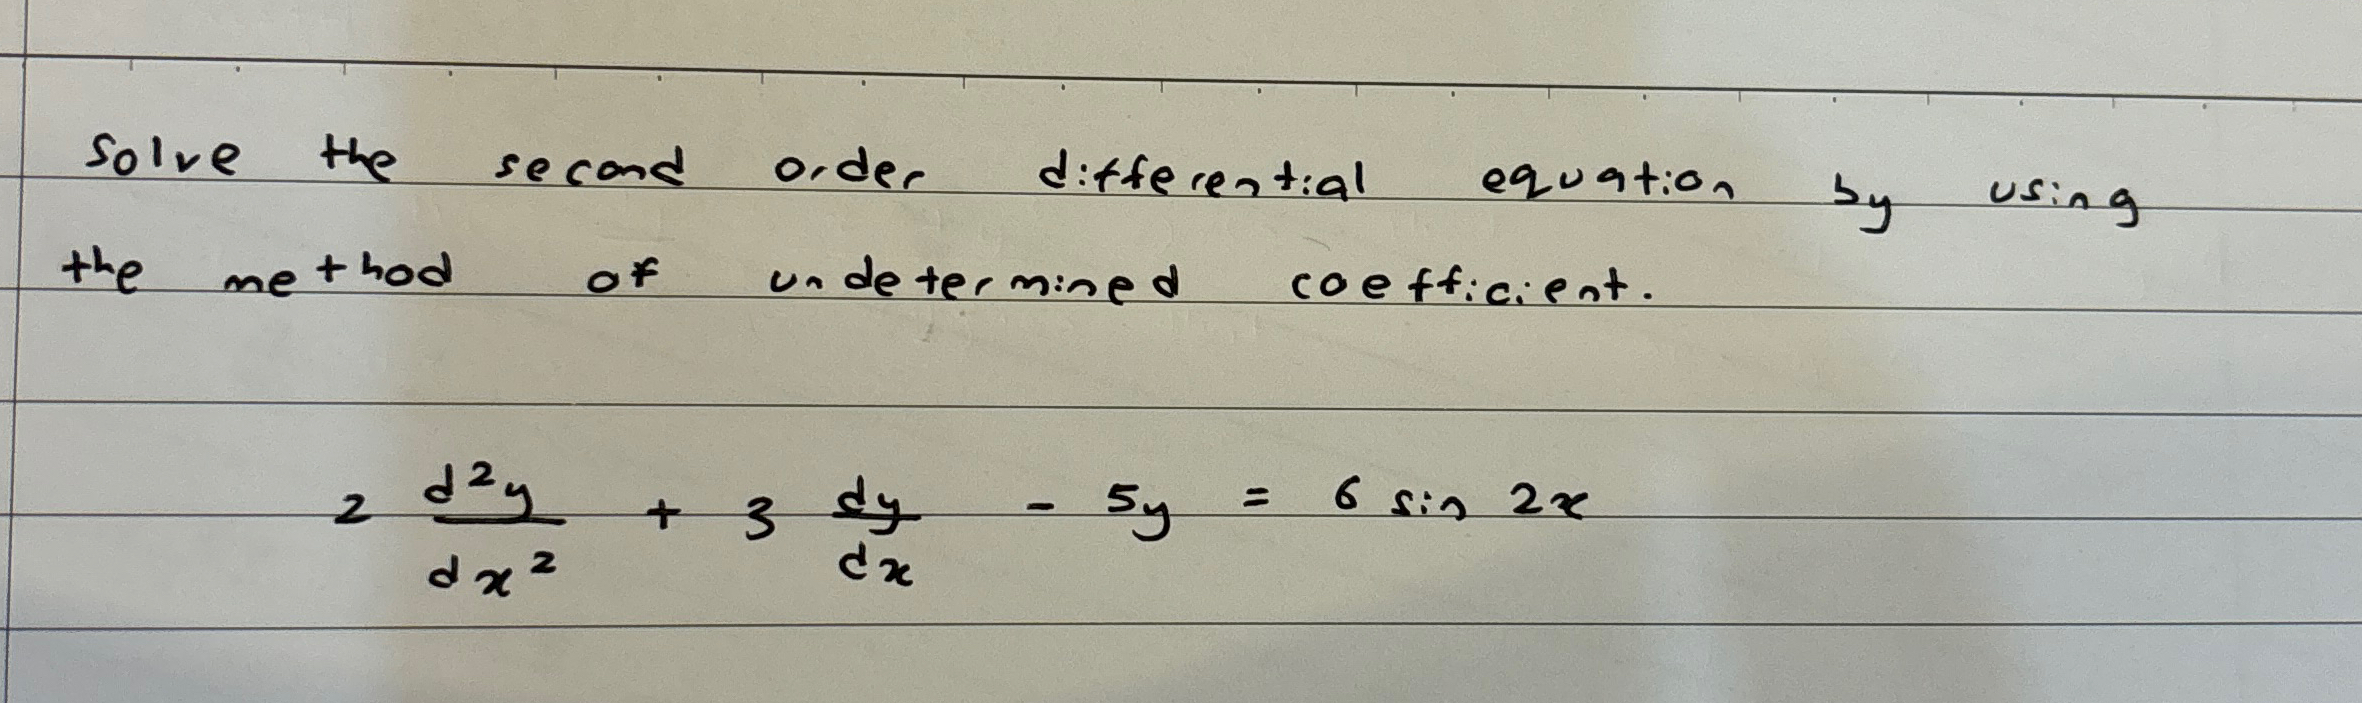 Solve the second order differential equation by using
the method of undetermined coefficient.
2 d²y/dx² + 3 dy/dx - 5y = 6 sin 2x